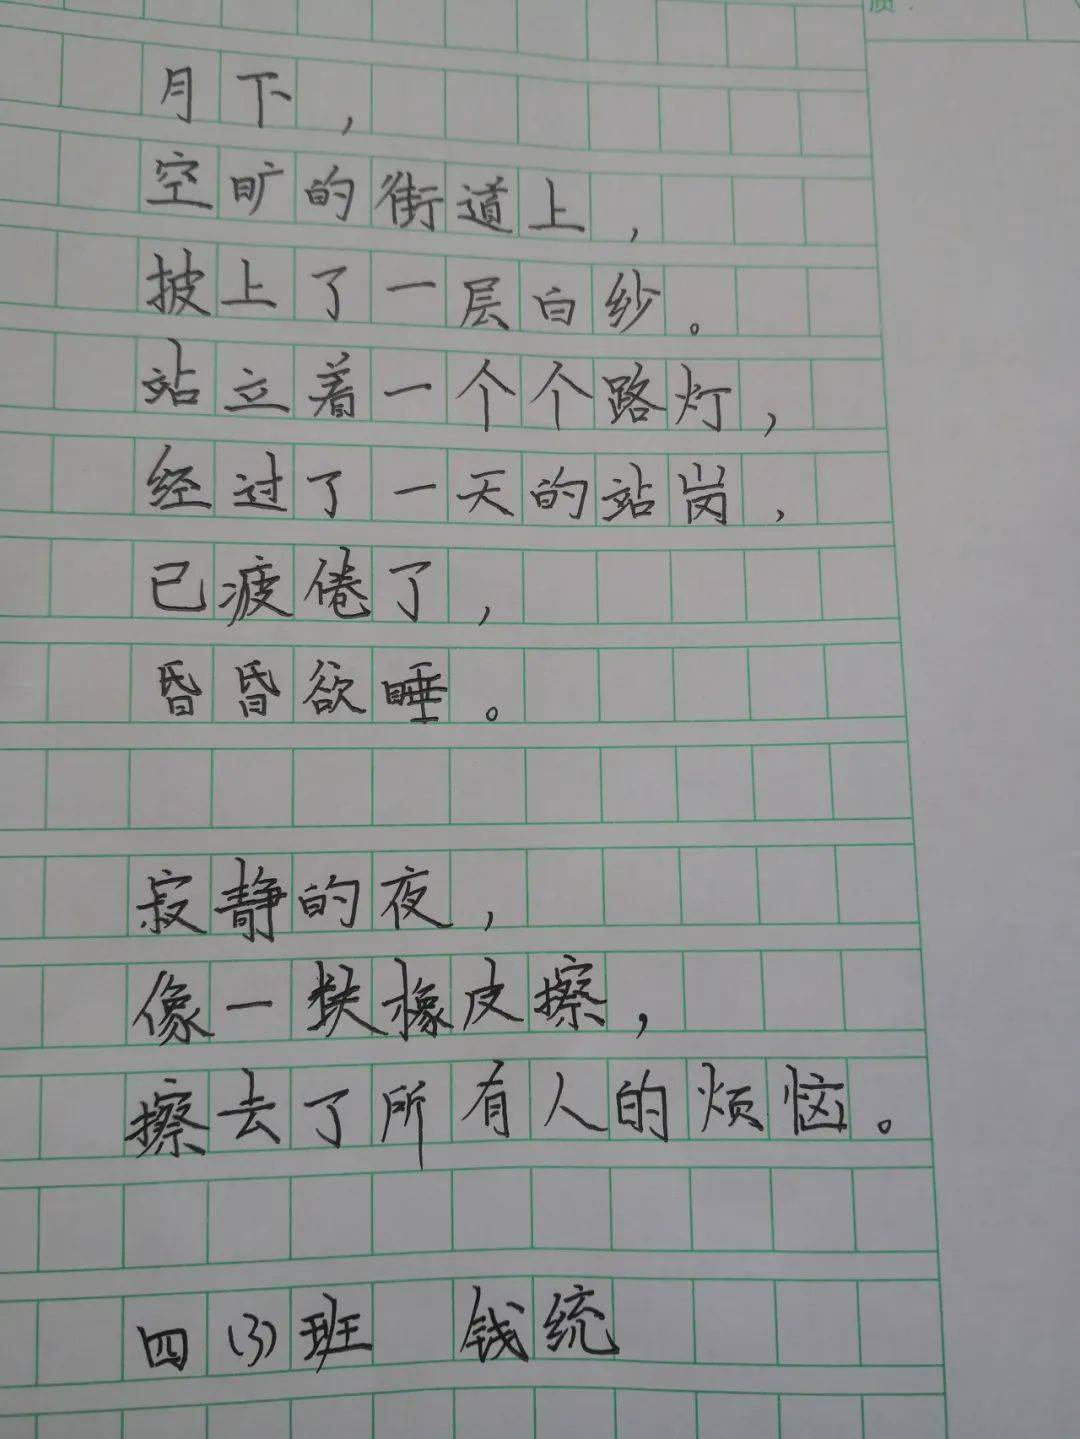 月下，
空旷的街道上，
披上了一层白纱。
站立着一个个路灯，
经过了一天的站岗，
已疲倦了，
昏昏欲睡。
寂静的夜，
像一块橡皮擦，
擦去了所有人的烦恼。
四(3)班 钱统